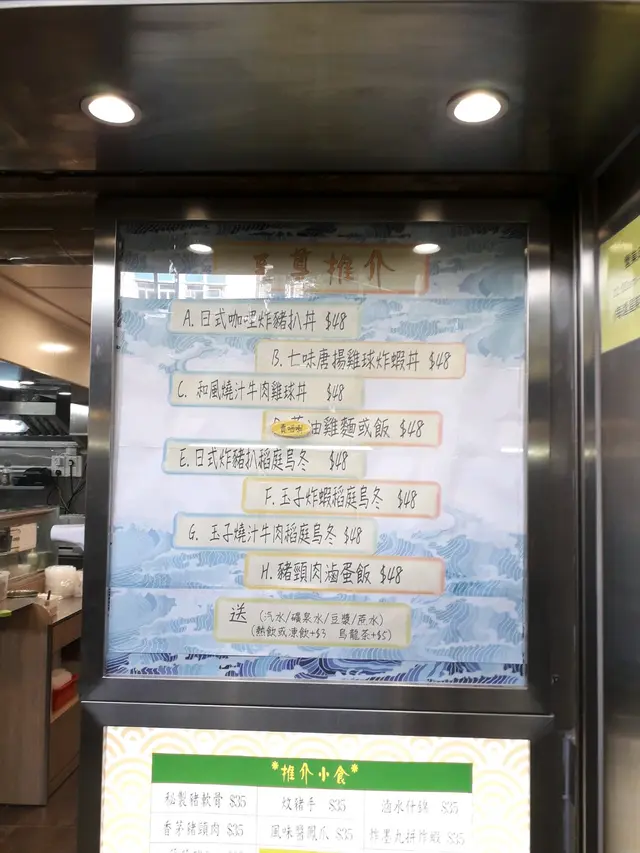 至尊推介
A. 日式咖哩炸豬扒丼 $48
B. 七味唐揚雞球炸蝦丼 $48
C. 和風燒汁牛肉雞球丼 $48
油雞麵或飯 $48
E. 日式炸豬扒稻庭烏冬 $48
F. 玉子炸蝦稻庭烏冬 $48
G. 玉子燒汁牛肉稻庭烏冬 $48
H. 豬頸肉滷蛋飯 $48
送 (汽水/礦泉水/豆漿/蔗水)
(熱飲或凍飲+$3 烏龍茶+$5)
*推介小食*
秘製豬軟骨 $35 炆豬手 $35 滷水什錦 $35
香茅豬頸肉 $35 風味醬鳳爪 $35 炸墨丸拼炸蝦 $35